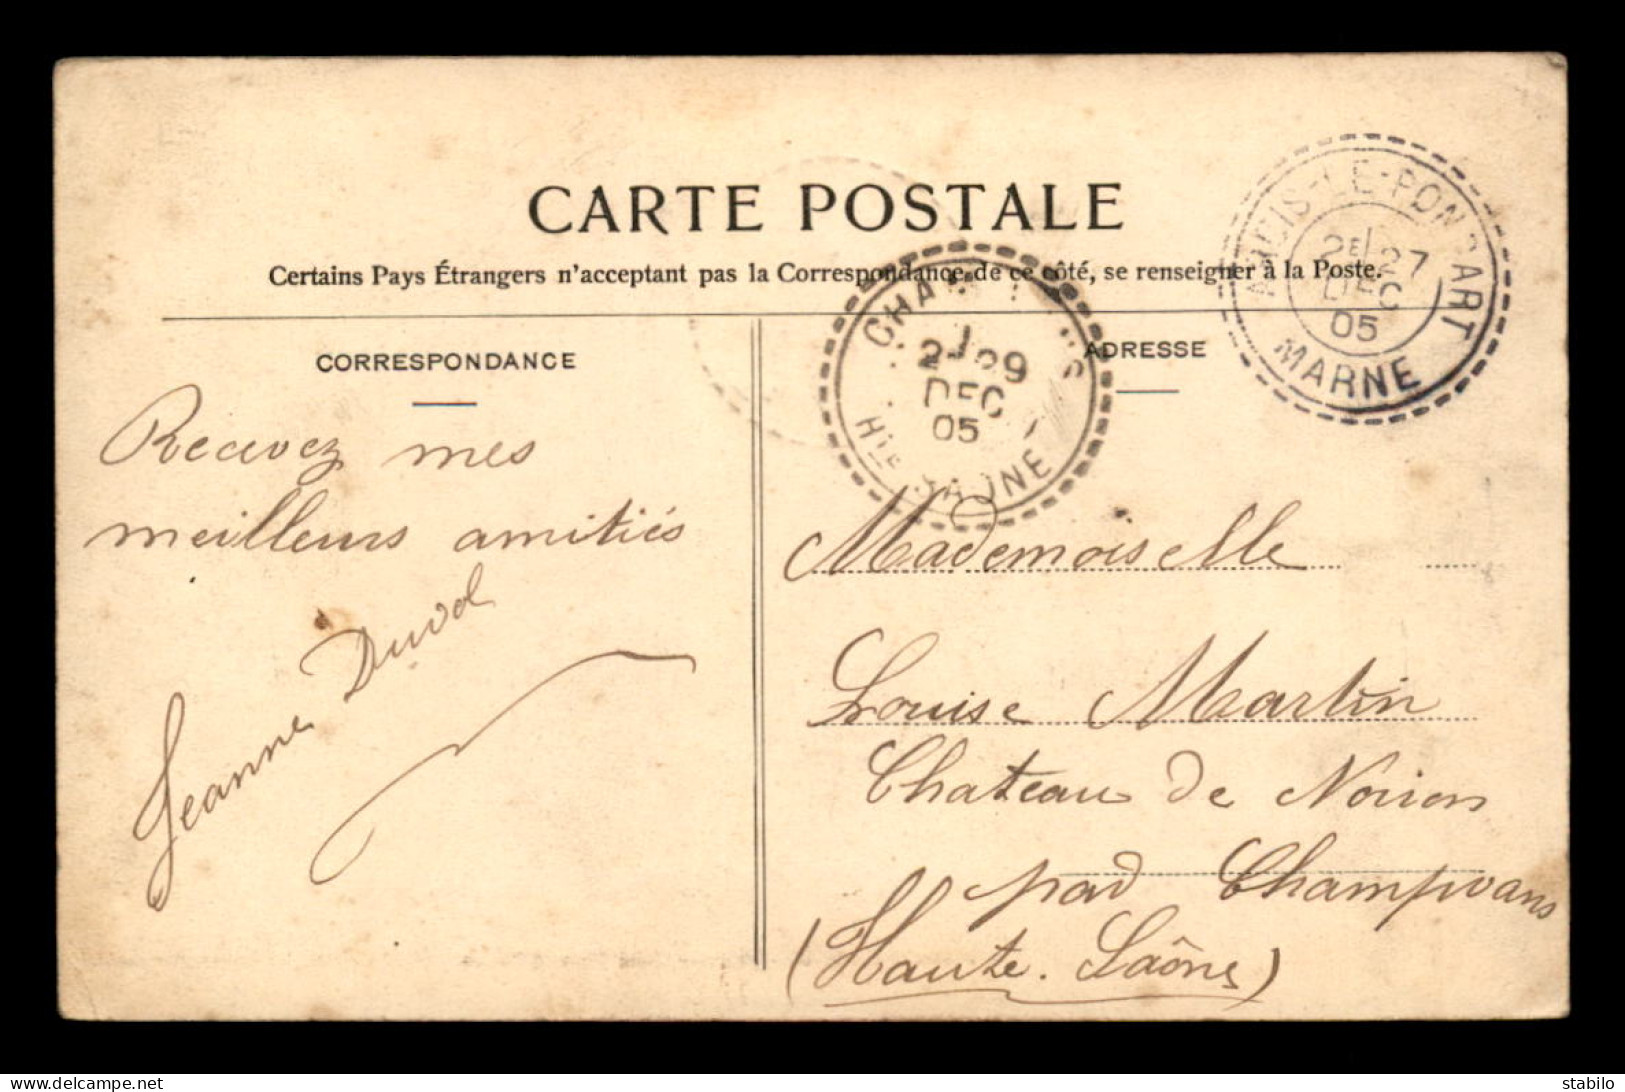 CARTE POSTALE
Certains Pays Étrangers n'acceptant pas la Correspondance de ce côté, se renseigner à la Poste.
ARCIS-LE-PONSART
2E 27
DEC
05
MARNE
2E 29
DEC
05
Hte SAONE
CORRESPONDANCE
Recevez mes
meilleurs amitiés
Jeanne Duval
ADRESSE
Mademoiselle
Louise Martin
Chateau de
par Champvans
(Haute-Saône)
stabilo